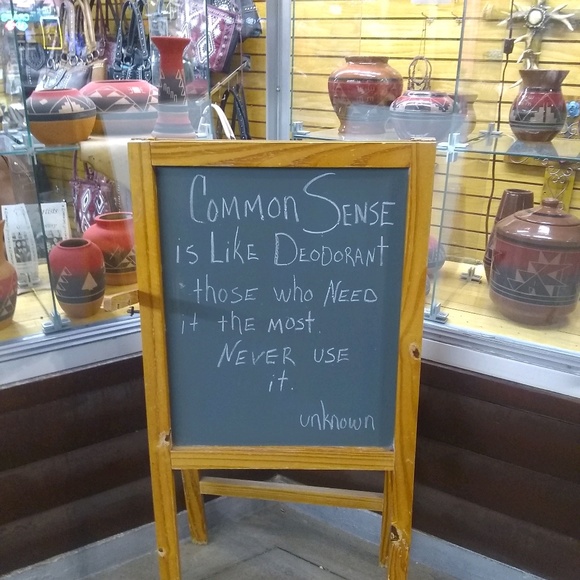 Common Sense
is Like Deodorant
those who Need
it the most.
Never use
it.
unknown